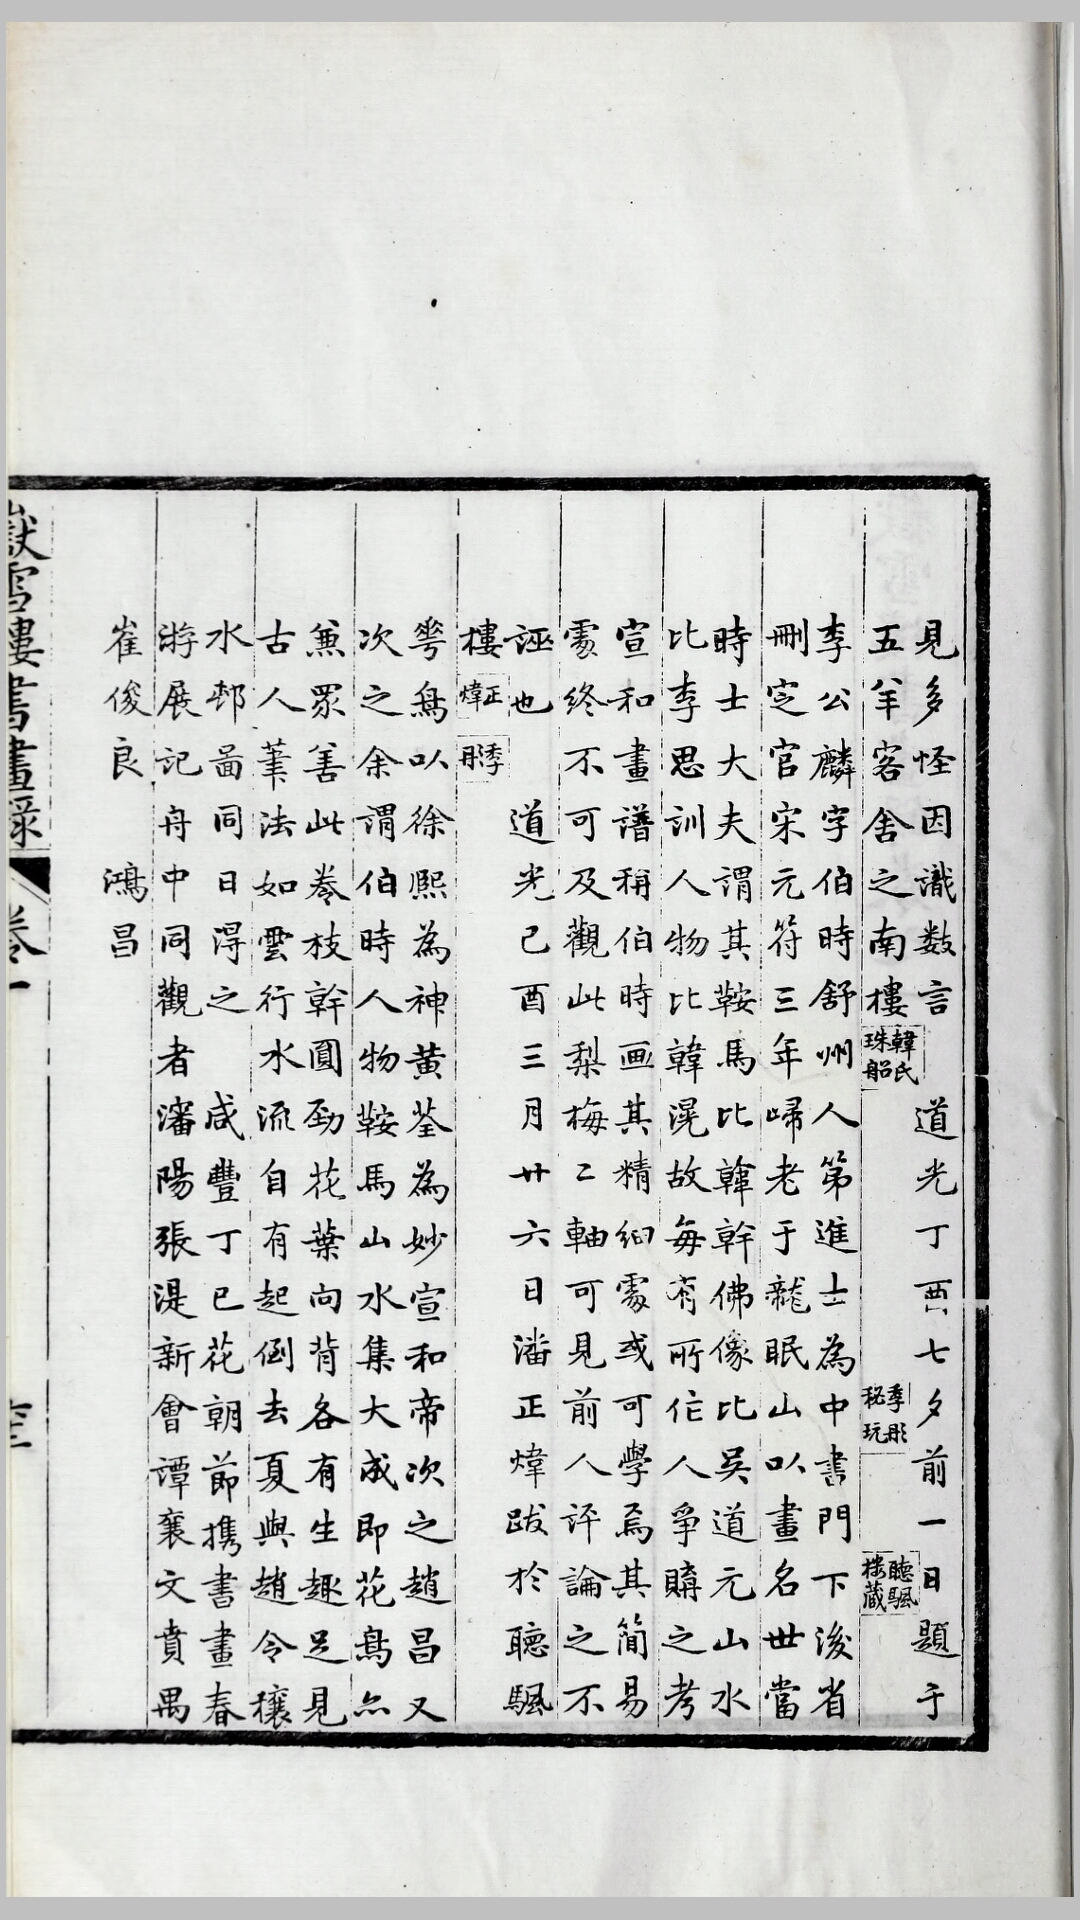 見多怪因識数言　道光丁酉七夕前一日題于
五羊客舍之南樓
韓氏
珠船
季彤
秘玩
聽颿
樓藏
李公麟字伯時舒州人第進士為中書門下後省
刪定官宋元符三年歸老于龍眠山以畫名世當
時士大夫謂其鞍馬比韓幹佛像比吳道元山水
比李思訓人物比韓滉故每有所作人爭購之考
宣和畫譜稱伯時画其精細處或可學焉其簡易
處終不可及觀此梨梅二軸可見前人評論之不
誣也　道光己酉三月廿六日潘正煒跋於聽颿
樓
正
煒
季
彤
花鳥以徐熙為神黃荃為妙宣和帝次之趙昌又
次之余謂伯時人物鞍馬山水集大成即花鳥亦
兼眾善此卷枝幹圓勁花葉向背各有生趣足見
古人筆法如雲行水流自有起倒去夏與趙令穰
水邨啚同日得之　咸豐丁巳花朝節携書畫春
游展記舟中同觀者瀋陽張湜新會譚襄文賁禺
崔俊良　鴻昌
嶽雪樓書畫錄　卷一